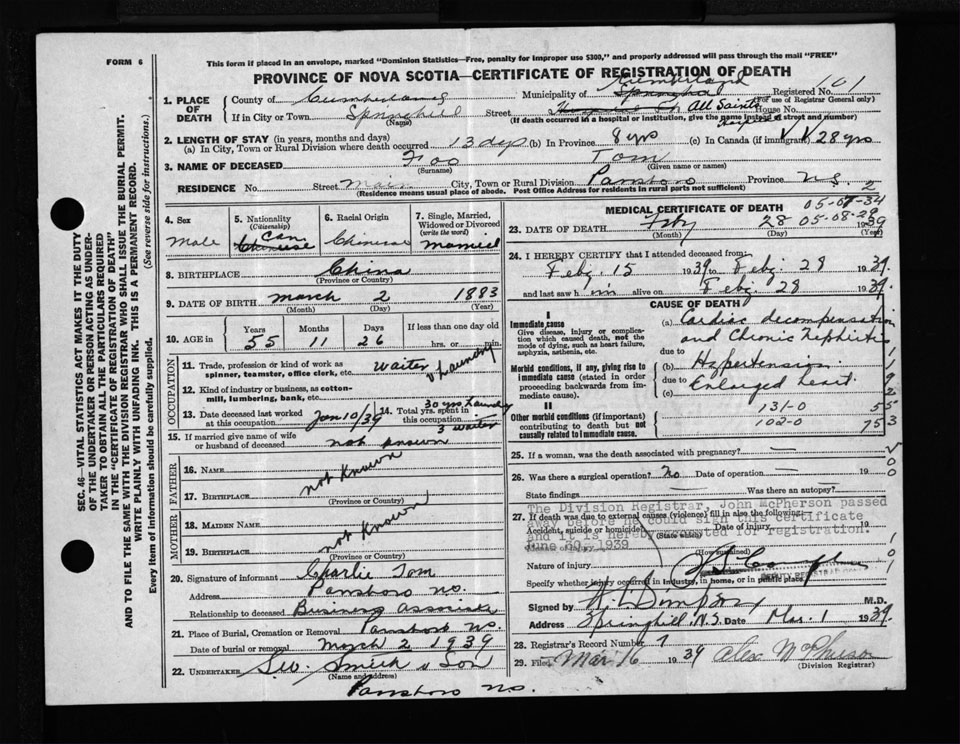 FORM 6
This form if placed in an envelope, marked "Dominion Statistics—Free, penalty for improper use $300," and properly addressed will pass through the mail "FREE"
PROVINCE OF NOVA SCOTIA—CERTIFICATE OF REGISTRATION OF DEATH
1. PLACE OF DEATH
County of Cumberland Municipality of Cumberland Registered No. 101
(For use of Registrar General only)
If in City or Town Springhill Street All Saints Hospital House No.
(Name) (If death occurred in a hospital or institution, give the name instead of street and number)
2. LENGTH OF STAY (in years, months and days)
(a) In City, Town or Rural Division where death occurred 13 dys (b) In Province 8 yrs (c) In Canada (if immigrant) 28 yrs
3. NAME OF DECEASED Foo Tom
(Surname) (Given name or names)
RESIDENCE No. Street Main City, Town or Rural Division Parrsboro Province N.S. 2
(Residence means usual place of abode. Post Office Address for residents in rural parts not sufficient)
4. Sex
Male
5. Nationality (Citizenship)
Can
Chinese
6. Racial Origin
Chinese
7. Single, Married, Widowed or Divorced (write the word)
Married
8. BIRTHPLACE China
(Province or Country)
9. DATE OF BIRTH March 2 1883
(Month) (Day) (Year)
10. AGE in
Years Months Days If less than one day old
55 11 26 hrs. or min.
OCCUPATION
11. Trade, profession or kind of work as spinner, teamster, office clerk, etc. Waiter & Laundry
12. Kind of industry or business, as cotton-mill, lumbering, bank, etc.
13. Date deceased last worked at this occupation Jan 10/39
14. Total yrs. spent in this occupation 30 yrs Laundry
3 waiter
15. If married give name of wife or husband of deceased not known
FATHER
16. NAME
17. BIRTHPLACE
not known
(Province or Country)
MOTHER
18. MAIDEN NAME
19. BIRTHPLACE
not known
(Province or Country)
20. Signature of informant Charlie Tom
Address Parrsboro N.S.
Relationship to deceased Business Associate
21. Place of Burial, Cremation or Removal Parrsboro N.S.
Date of burial or removal March 2 1939
22. UNDERTAKER Smith & Son
(Name and address)
Parrsboro N.S.
MEDICAL CERTIFICATE OF DEATH
05-07-34
05-08-29
23. DATE OF DEATH Feby 28 1939
(Month) (Day) (Year)
24. I HEREBY CERTIFY that I attended deceased from:
Feby 15 1939 to Feby 28 1939.
and last saw him alive on Feby 28 1939.
CAUSE OF DEATH
I
Immediate cause
Give disease, injury or complication which caused death, not the mode of dying, such as heart failure, asphyxia, asthenia, etc.
(a) Cardiac decompensation
and Chronic Nephritis
due to
Morbid conditions, if any, giving rise to immediate cause (stated in order proceeding backwards from immediate cause).
(b) Hypertension
due to
(c) Enlarged heart.
II
Other morbid conditions (if important) contributing to death but not causally related to immediate cause.
131-0 55
102-0 753
25. If a woman, was the death associated with pregnancy? —
26. Was there a surgical operation? No Date of operation — 19
State findings Was there an autopsy? —
27. If death was due to external causes (violence) fill in also the following:—
Accident, suicide or homicide? Date of injury 19
(State which)
The Division Registrar, John McPherson passed
away before he could sign this certificate
and it is hereby accepted for registration.
June 30, 1939
(How sustained)
Nature of injury
DEPUTY REGISTRAR
Specify whether injury occurred in industry, in home, or in public place
Signed by M.D.
Address Springhill, N.S. Date Mar. 1 1939.
28. Registrar's Record Number 7
29. Filed Mar 16 1939 Alex McPherson
(Division Registrar)
SEC. 46—VITAL STATISTICS ACT MAKES IT THE DUTY
OF THE UNDERTAKER OR PERSON ACTING AS UNDER-
TAKER TO OBTAIN ALL THE PARTICULARS REQUIRED
IN THE "CERTIFICATE OF REGISTRATION OF DEATH"
AND TO FILE THE SAME WITH THE DIVISION REGISTRAR WHO SHALL ISSUE THE BURIAL PERMIT.
WRITE PLAINLY WITH UNFADING INK. THIS IS A PERMANENT RECORD.
Every item of information should be carefully supplied. (See reverse side for instructions.)